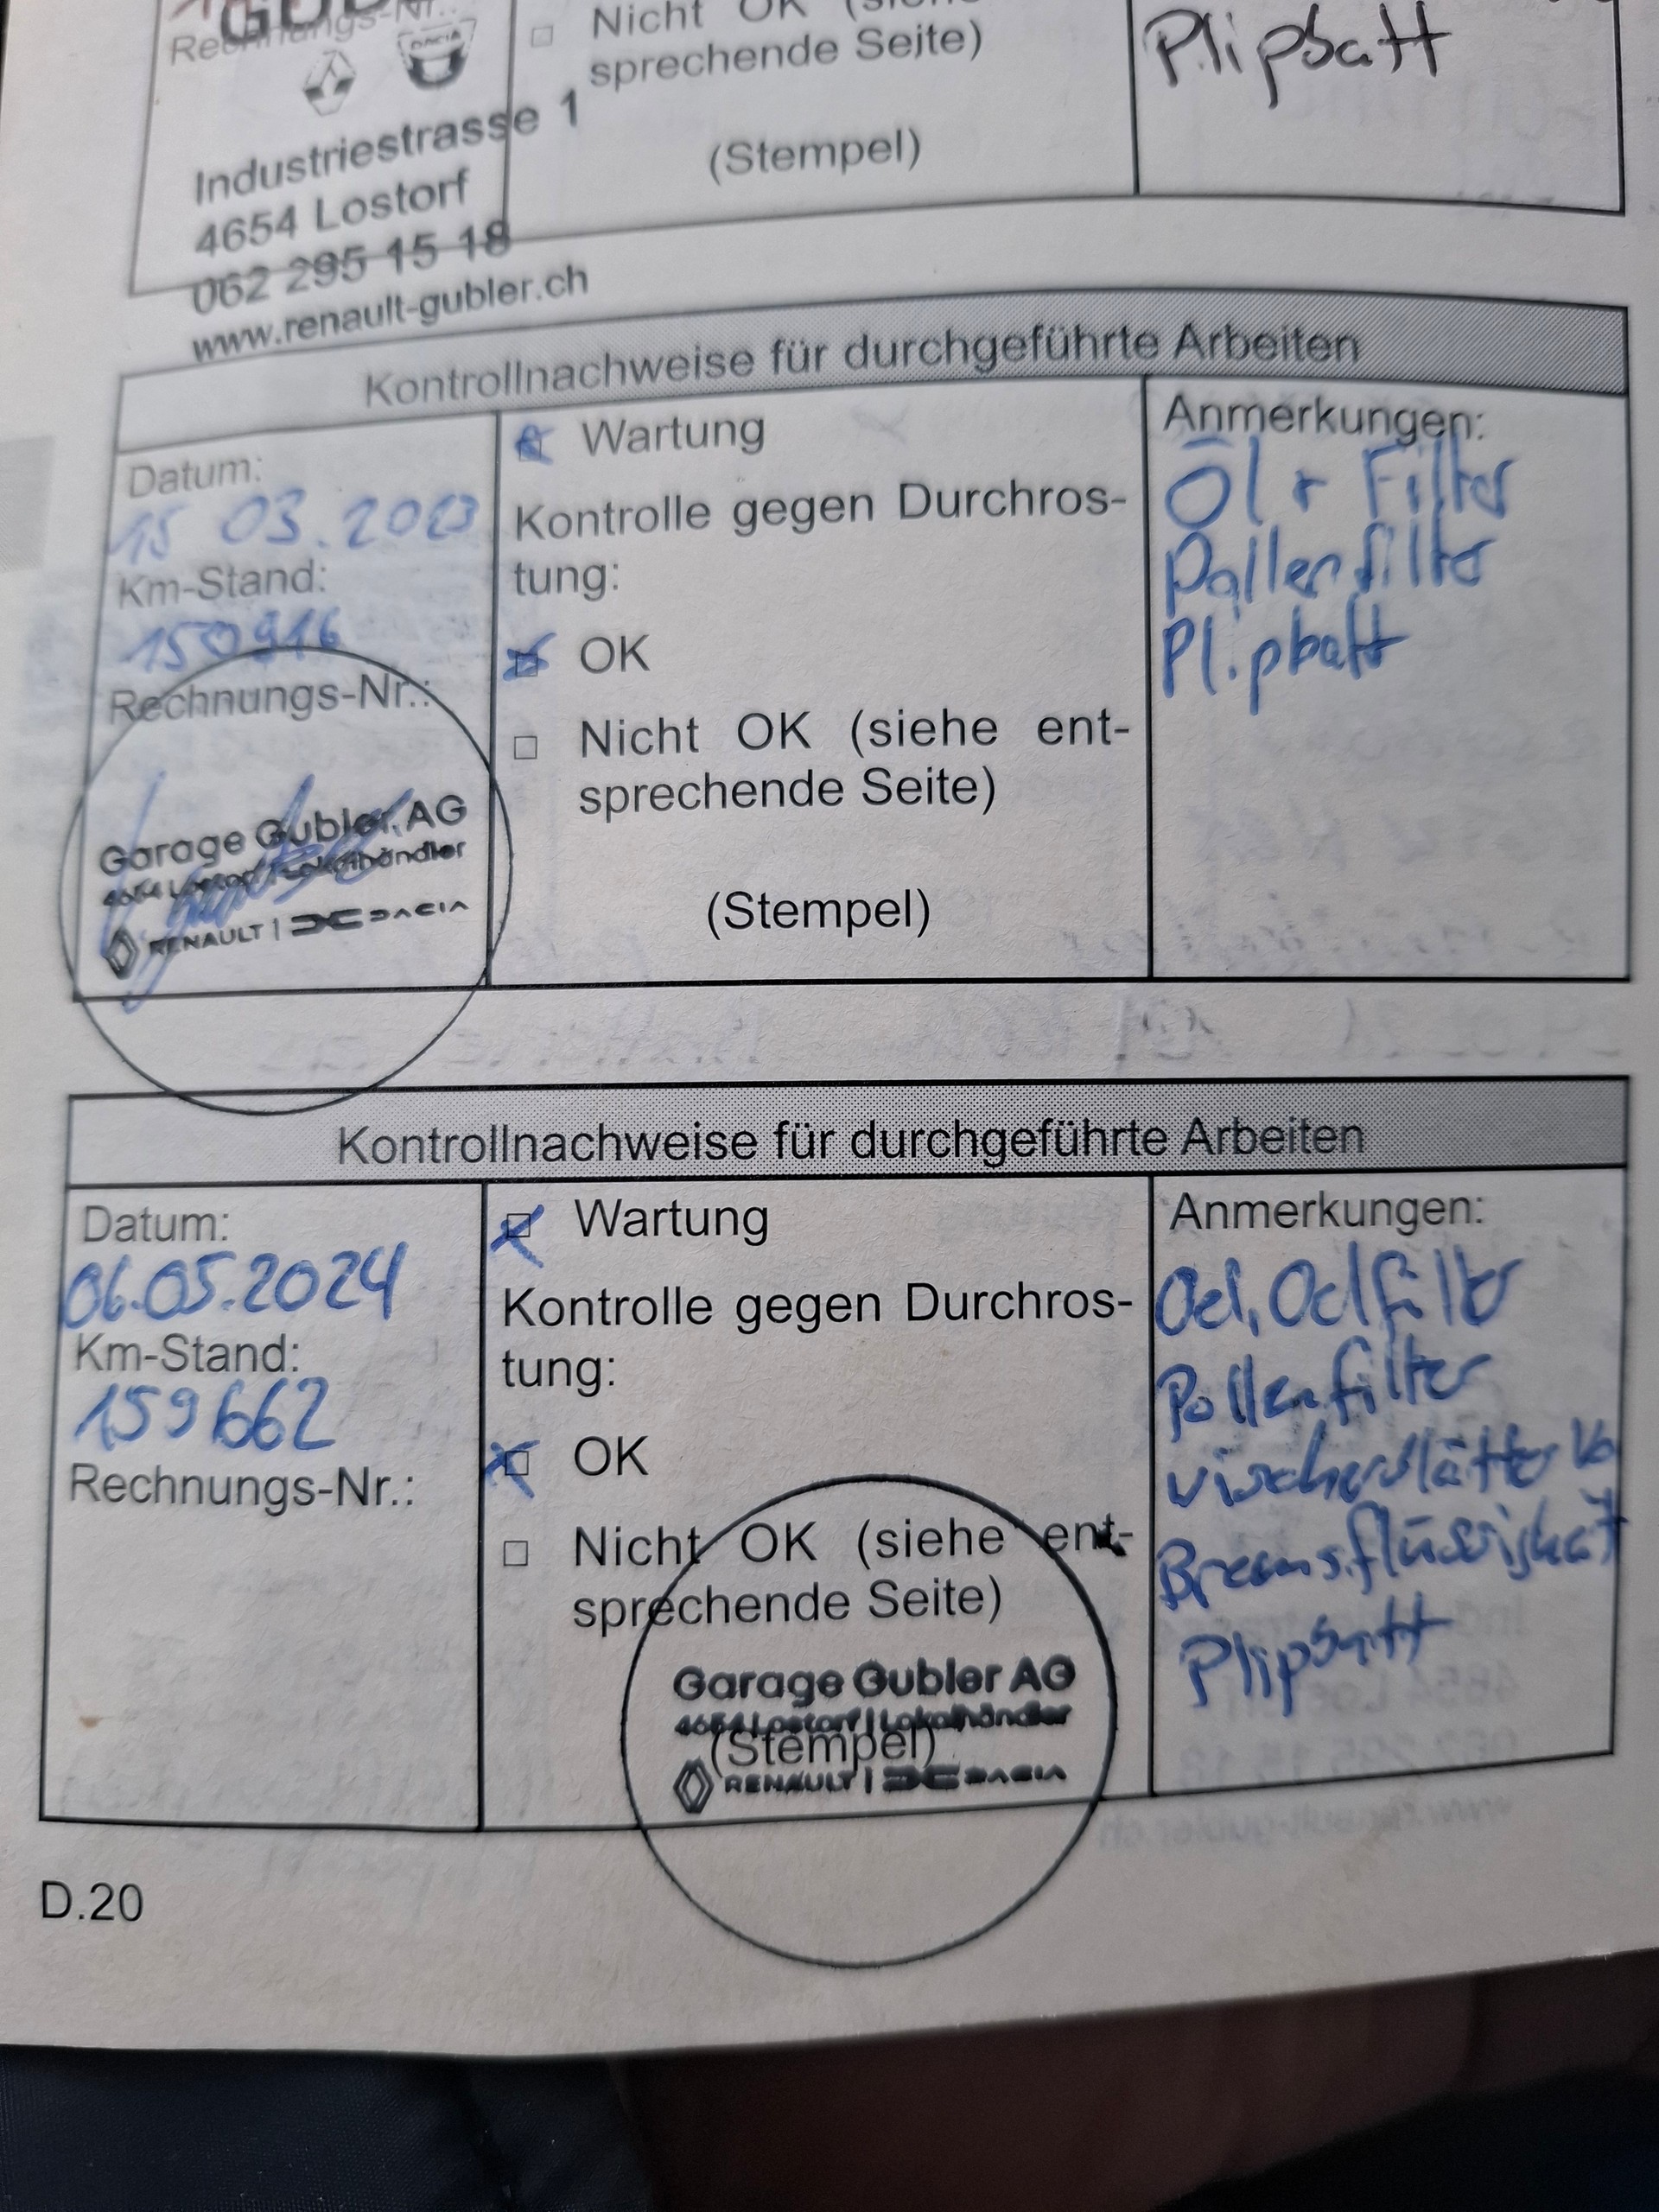 Rechnungs-Nr.:
DACIA
Industriestrasse 1
4654 Lostorf
062 295 15 18
www.renault-gubler.ch
Nicht OK (siehe
sprechende Seite)
(Stempel)
Plipbatt
Kontrollnachweise für durchgeführte Arbeiten
Datum:
15 03.2023
Km-Stand:
150916
Rechnungs-Nr.:
Garage Gubler AG
4654 Lostorf | Lokalhändler
RENAULT | DACIA
Wartung
Kontrolle gegen Durchros-
tung:
OK
Nicht OK (siehe ent-
sprechende Seite)
(Stempel)
Anmerkungen:
Öl + Filter
Pollenfilter
Plipbatt
Kontrollnachweise für durchgeführte Arbeiten
Datum:
06.05.2024
Km-Stand:
159662
Rechnungs-Nr.:
Wartung
Kontrolle gegen Durchros-
tung:
OK
Nicht OK (siehe ent-
sprechende Seite)
Garage Gubler AG
4654 Lostorf | Lokalhändler
(Stempel)
RENAULT | DACIA
Anmerkungen:
Oel, Oelfilter
Pollenfilter
Bremsflüssigkeit
Plipbatt
D.20